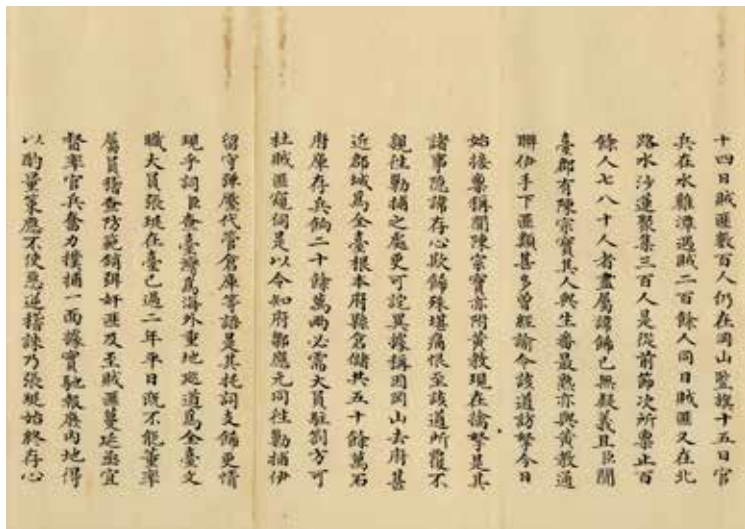 十四日賊匪數百人仍在岡山豎旗十五日官
兵在水雞潭遇賊二百餘人同日賊匪又在北
路水沙連聚集三百人是從前節次所稟止百
餘人七八十人者盡屬諱飾已無疑義且臣聞
臺郡有陳宗寶其人與生番最熟亦與黃教通
聯伊手下匪類甚多曾經諭令該道訪拏今日
始接稟稱聞陳宗寶亦附黃教現在擒拏是其
諸事隱諱存心欺飾殊堪痛恨至該道所覆不
親往勦捕之處更可詫異據稱因岡山去府甚
近郡城為全臺根本府縣倉儲共五十餘萬石
府庫存兵餉二十餘萬兩必需大員駐劄方可
杜賊匪窺伺是以令知府鄒應元同往勦捕伊
留守彈壓代管倉庫等語是其托詞支飾更情
現乎詞臣查臺灣為海外重地廵道為全臺文
職大員張珽在臺已過二年平日既不能董率
屬員稽查防範銷弭奸匪及至賊匪蔓延亟宜
督率官兵奮力撲捕一面據實馳報庶內地得
以酌量策應不使惡逆稽誅乃張珽始終存心